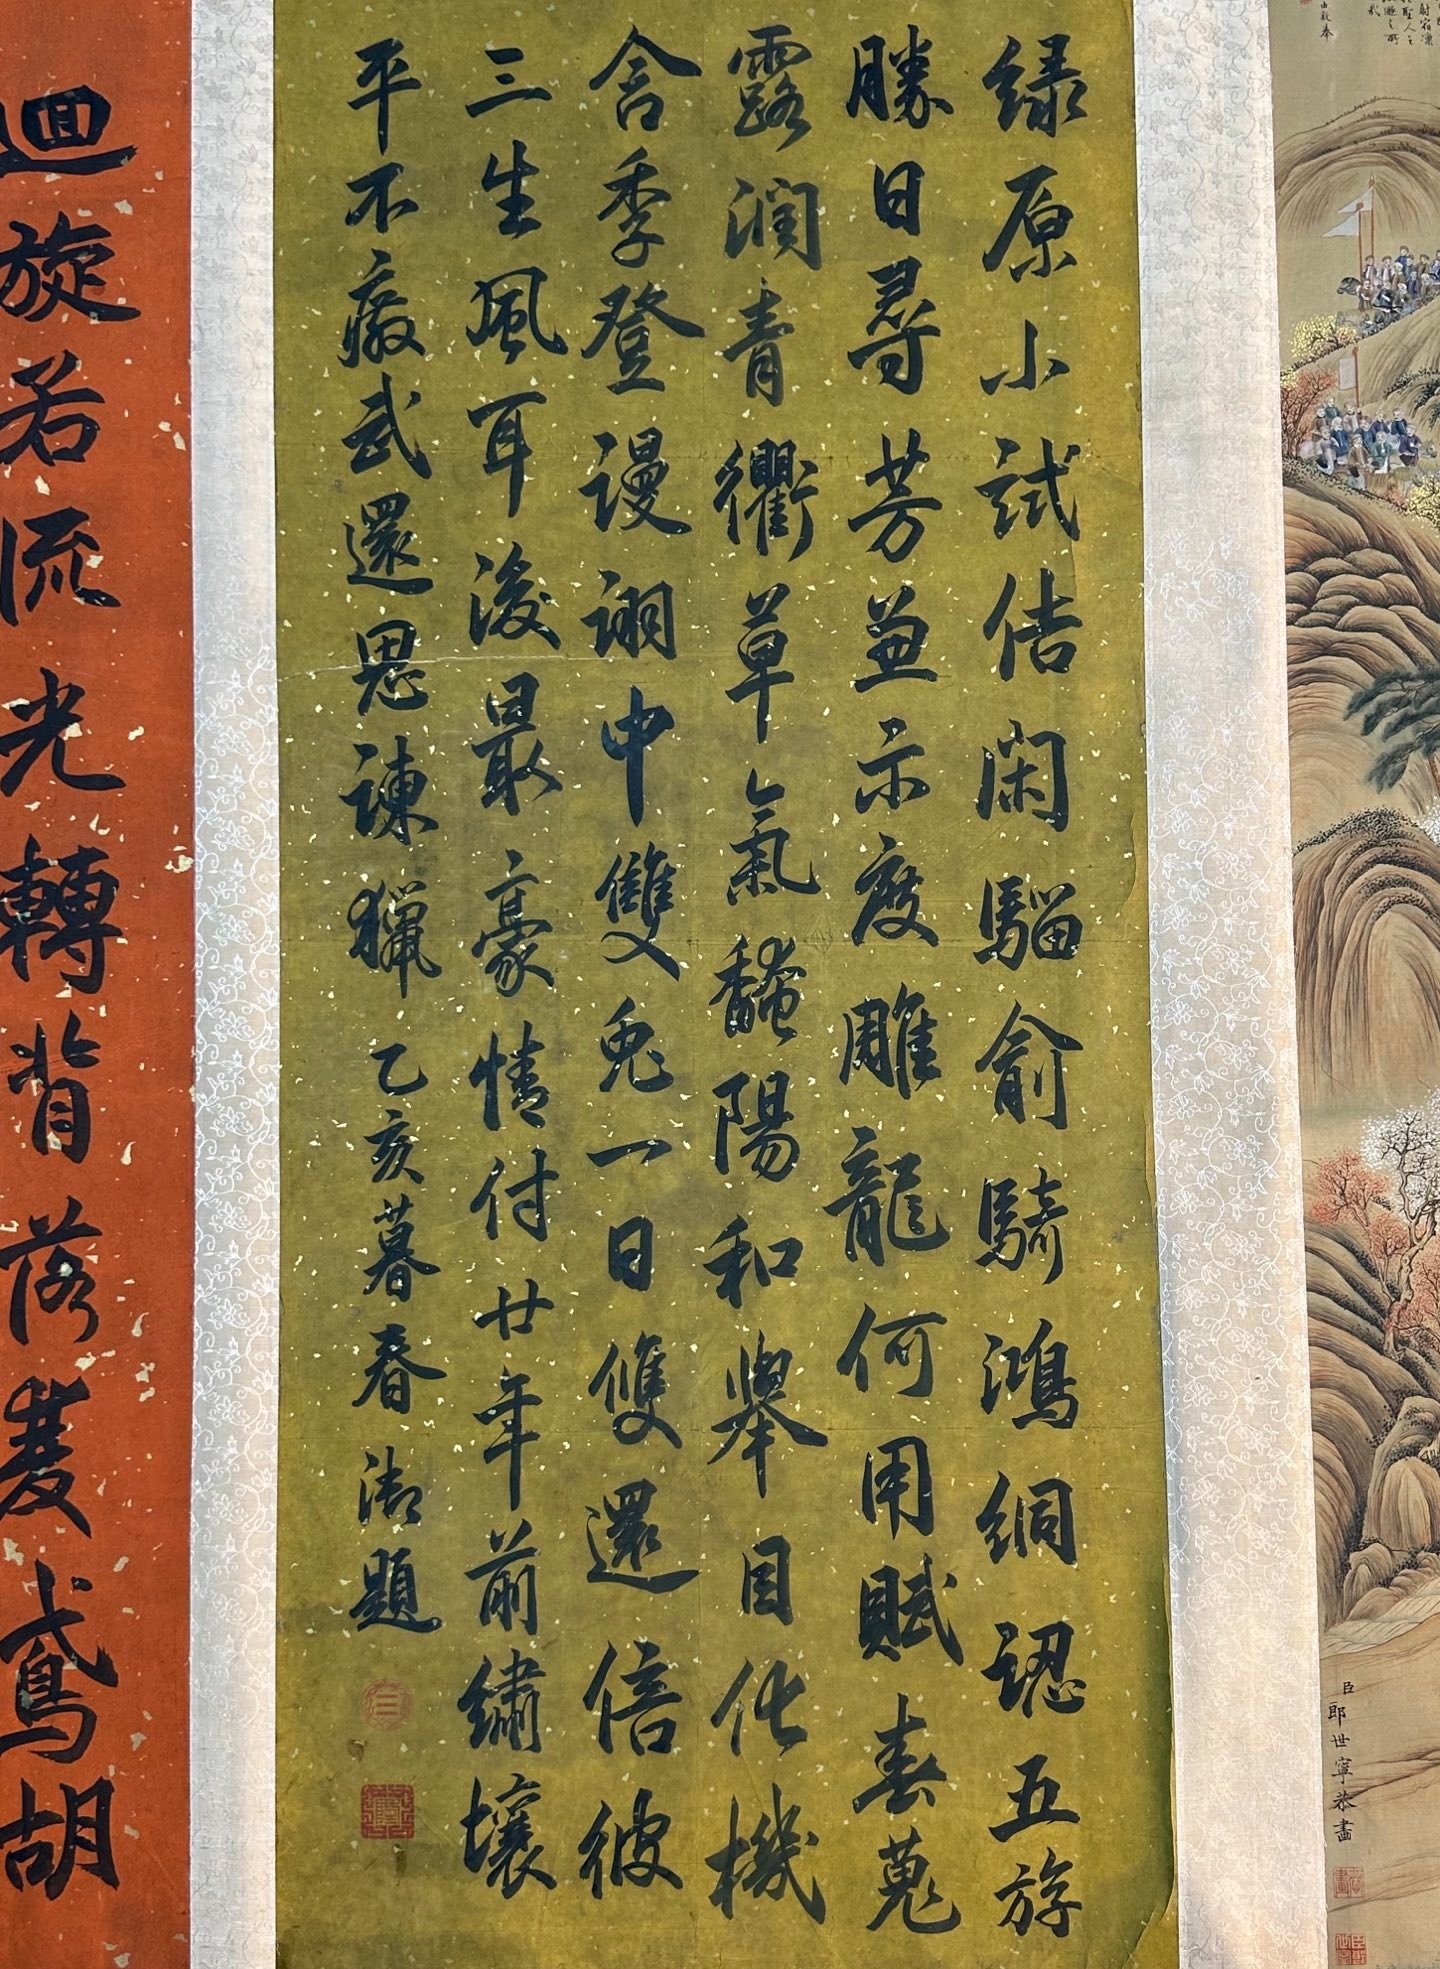 由敬奉
臣郎世寧恭畫
緑原小試佶閑騮俞騎鴻絧認五斿
勝日尋芳兼示度雕龍何用賦春蒐
露潤青衢草氣馣陽和舉目化機
含季登謾詡中雙兎一日雙還倍彼
三生風耳後最豪情付廿年前繡壤
平不廢武還思諫獵乙亥暮春御題
迴旋若流光轉背落雙鳶胡